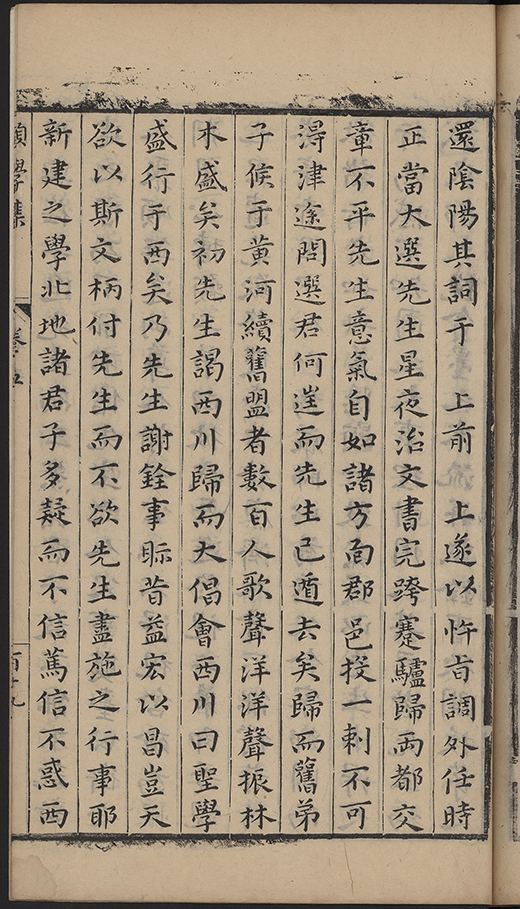 還陰陽其詞于　上前　上遂以忤旨調外任時
正當大選先生星夜治文書完跨蹇驢歸兩都交
章不平先生意氣自如諸方面郡邑投一刺不可
淂津途問選君何遑而先生已遁去矣歸而舊弟
子候于黃河續舊盟者數百人歌聲洋洋聲振林
木盛矣初先生謁西川歸而大倡會西川曰聖學
盛行于西矣乃先生謝銓事眎昔益宏以昌豈天
欲以斯文柄付先生而不欲先生盡施之行事耶
新建之學北地諸君子多疑而不信篤信不惑西
學集
卷五
百十九